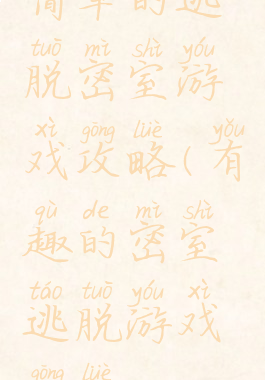 简单的逃
tuō mì shì yóu
脱密室游
xì gōng lüè yǒu
戏攻略(有
qù de mì shì
趣的密室
táo tuō yóu xì
逃脱游戏
gōng lüè